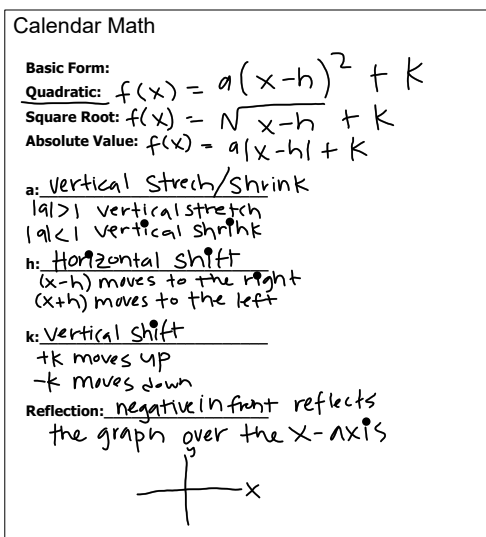 Calendar Math
Basic Form:
Quadratic: f(x) = a(x-h)² + K
Square Root: f(x) = √x-h + K
Absolute Value: f(x) = a|x-h| + K
a: vertical strech/shrink
|a|>1 vertical stretch
|a|<1 vertical shrink
h: Horizontal shift
(x-h) moves to the right
(x+h) moves to the left
k: vertical shift
+K moves up
-K moves down
Reflection: negative in front reflects
the graph over the x-axis
y
x